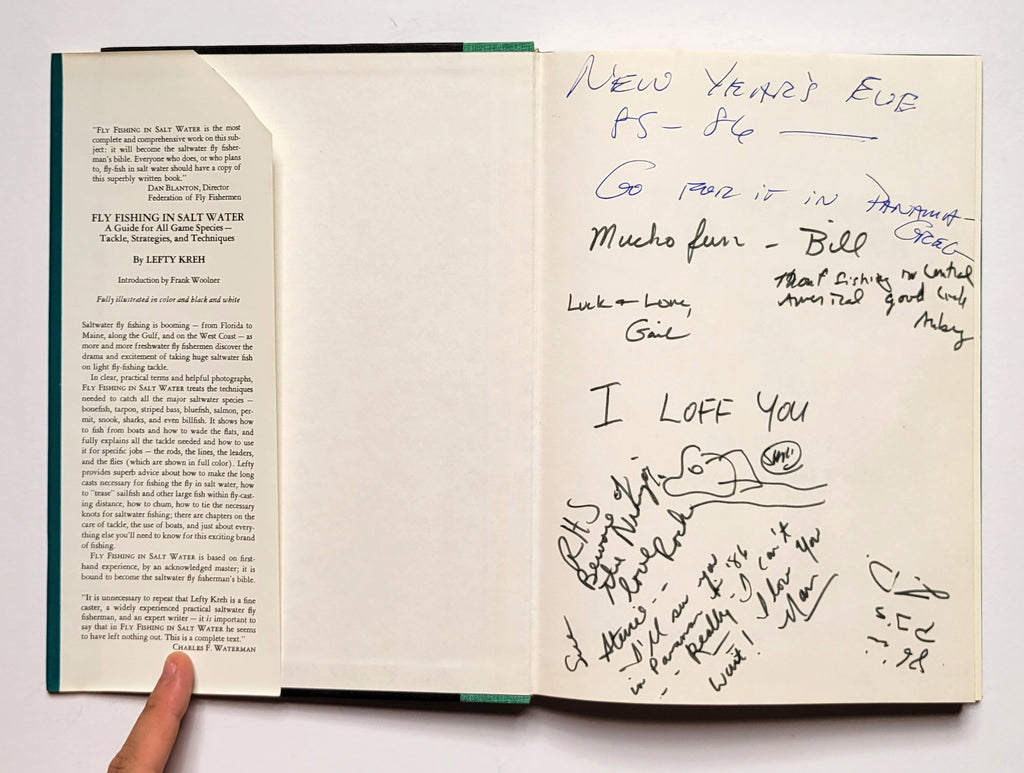 "FLY FISHING IN SALT WATER is the most
complete and comprehensive work on this sub-
ject: it will become the saltwater fly fisher-
man's bible. Everyone who does, or who plans
to, fly-fish in salt water should have a copy of
this superbly written book."
DAN BLANTON, Director
Federation of Fly Fishermen
FLY FISHING IN SALT WATER
A Guide for All Game Species—
Tackle, Strategies, and Techniques
By LEFTY KREH
Introduction by Frank Woolner
Fully illustrated in color and black and white
Saltwater fly fishing is booming — from Florida to
Maine, along the Gulf, and on the West Coast — as
more and more freshwater fly fishermen discover the
drama and excitement of taking huge saltwater fish
on light fly-fishing tackle.
In clear, practical terms and helpful photographs,
FLY FISHING IN SALT WATER treats the techniques
needed to catch all the major saltwater species —
bonefish, tarpon, striped bass, bluefish, salmon, per-
mit, snook, sharks, and even billfish. It shows how
to fish from boats and how to wade the flats, and
fully explains all the tackle needed and how to use
it for specific jobs — the rods, the lines, the leaders,
and the flies (which are shown in full color). Lefty
provides superb advice about how to make the long
casts necessary for fishing the fly in salt water, how
to "tease" sailfish and other large fish within fly-cast-
ing distance, how to chum, how to tie the necessary
knots for saltwater fishing; there are chapters on the
care of tackle, the use of boats, and just about every-
thing else you'll need to know for this exciting brand
of fishing.
FLY FISHING IN SALT WATER is based on first-
hand experience, by an acknowledged master; it is
bound to become the saltwater fly fisherman's bible.
"It is unnecessary to repeat that Lefty Kreh is a fine
caster, a widely experienced practical saltwater fly
fisherman, and an expert writer — it is important to
say that in FLY FISHING IN SALT WATER he seems
to have left nothing out. This is a complete text."
CHARLES F. WATERMAN
NEW YEAR'S EVE
85 – 86
GO FOR IT IN PANAMA –
GREG
Mucho fun – Bill
fishing in Central
America good luck
Luck + Love,
Gail
I LOFF YOU
RHS
Beware of
the
love Rocky
I'll see you
in Panama '86
-- Really – I can't
wait! I love you